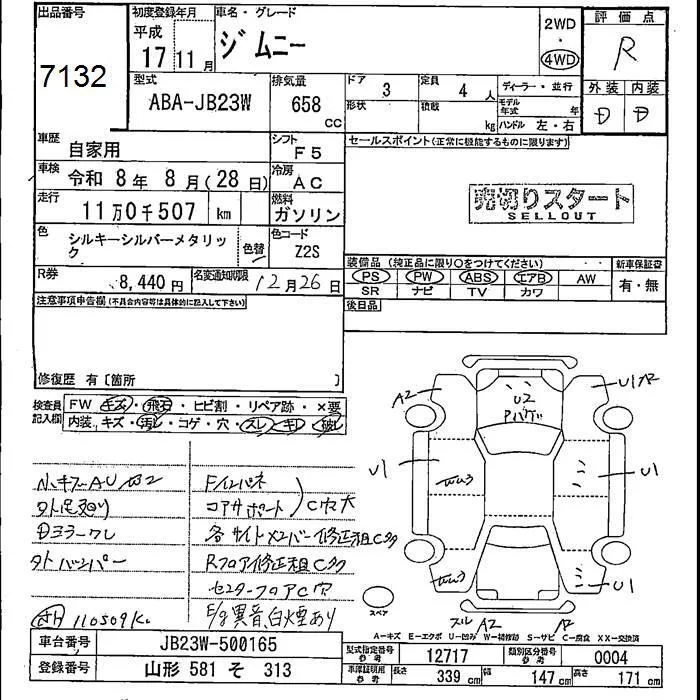 出品番号
7132
初度登録年月
平成
17年 11月
車名・グレード
ジムニー
2WD
・
4WD
評価点
R
外装 内装
D D
型式
ABA-JB23W
排気量
658
cc
ドア 3
定員 4人
形状
積載 kg
ディーラー・並行
モデル年式 年
ハンドル 左・右
車歴
自家用
シフト
F5
セールスポイント(正常に機能するものに限ります)
車検
令和 8年 8月(28日)
冷房
AC
走行
11万0千507 km
燃料
ガソリン
売切りスタート
SELLOUT
色
シルキーシルバーメタリック
色替
色コード
Z2S
R券
8,440円
名変通知期限
12月26日
装備品(純正品に限り○をつけてください)
新車保証書
PS PW ABS エアB AW
SR ナビ TV カワ
有・無
後日品
注意事項申告欄(不具合内容等は具体的に記入して下さい)
修復歴 有〔箇所 〕
検査員記入欄
FW キズ・飛石・ヒビ割・リペア跡・×要
内装 キズ・汚レ・コゲ・穴・スレ・キレ・破レ
A2
U2
U1 A2
U1
U1
W3
W3
U1
小キズAU
F/インパネ
コアサポート
C穴大
各サイドメンバー修正粗Cタク
Rフロア修正粗Cタク
外バンパー
センターフロアC穴
E/g異音、白煙あり
110509K
スペア
スレ A2
A2
A—キズ E—エクボ U—凹み W—補修跡 S—サビ C—腐食 XX—交換済
車台番号
JB23W-500165
登録番号
山形 581 そ 313
型式指定番号
参考
12717
類別区分番号
参考
0004
車庫証明用
参考
長さ 339cm
幅 147cm
高さ 171cm